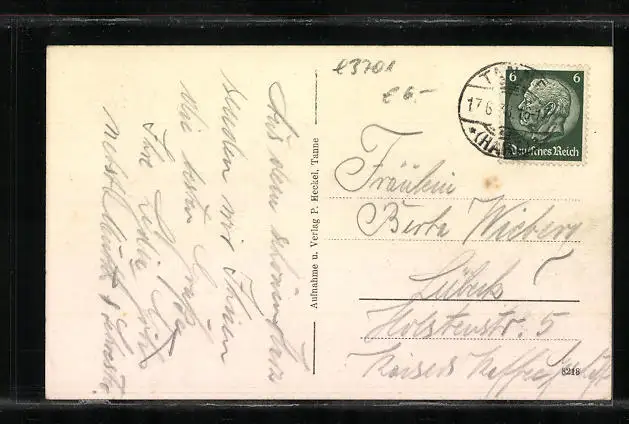 e3701
€ 6.-
TANNE
17.6.
(HARZ)
6 6
Deutsches Reich
Aus dem schönen Harz
senden wir Ihnen
die besten Grüße
Ihre
nebst Mutter &
Aufnahme u. Verlag P. Heckel, Tanne
Fräulein
Berta Wieberg
Lübeck
Holstenstr. 5
Kaisers Kaffeegeschäft
8218